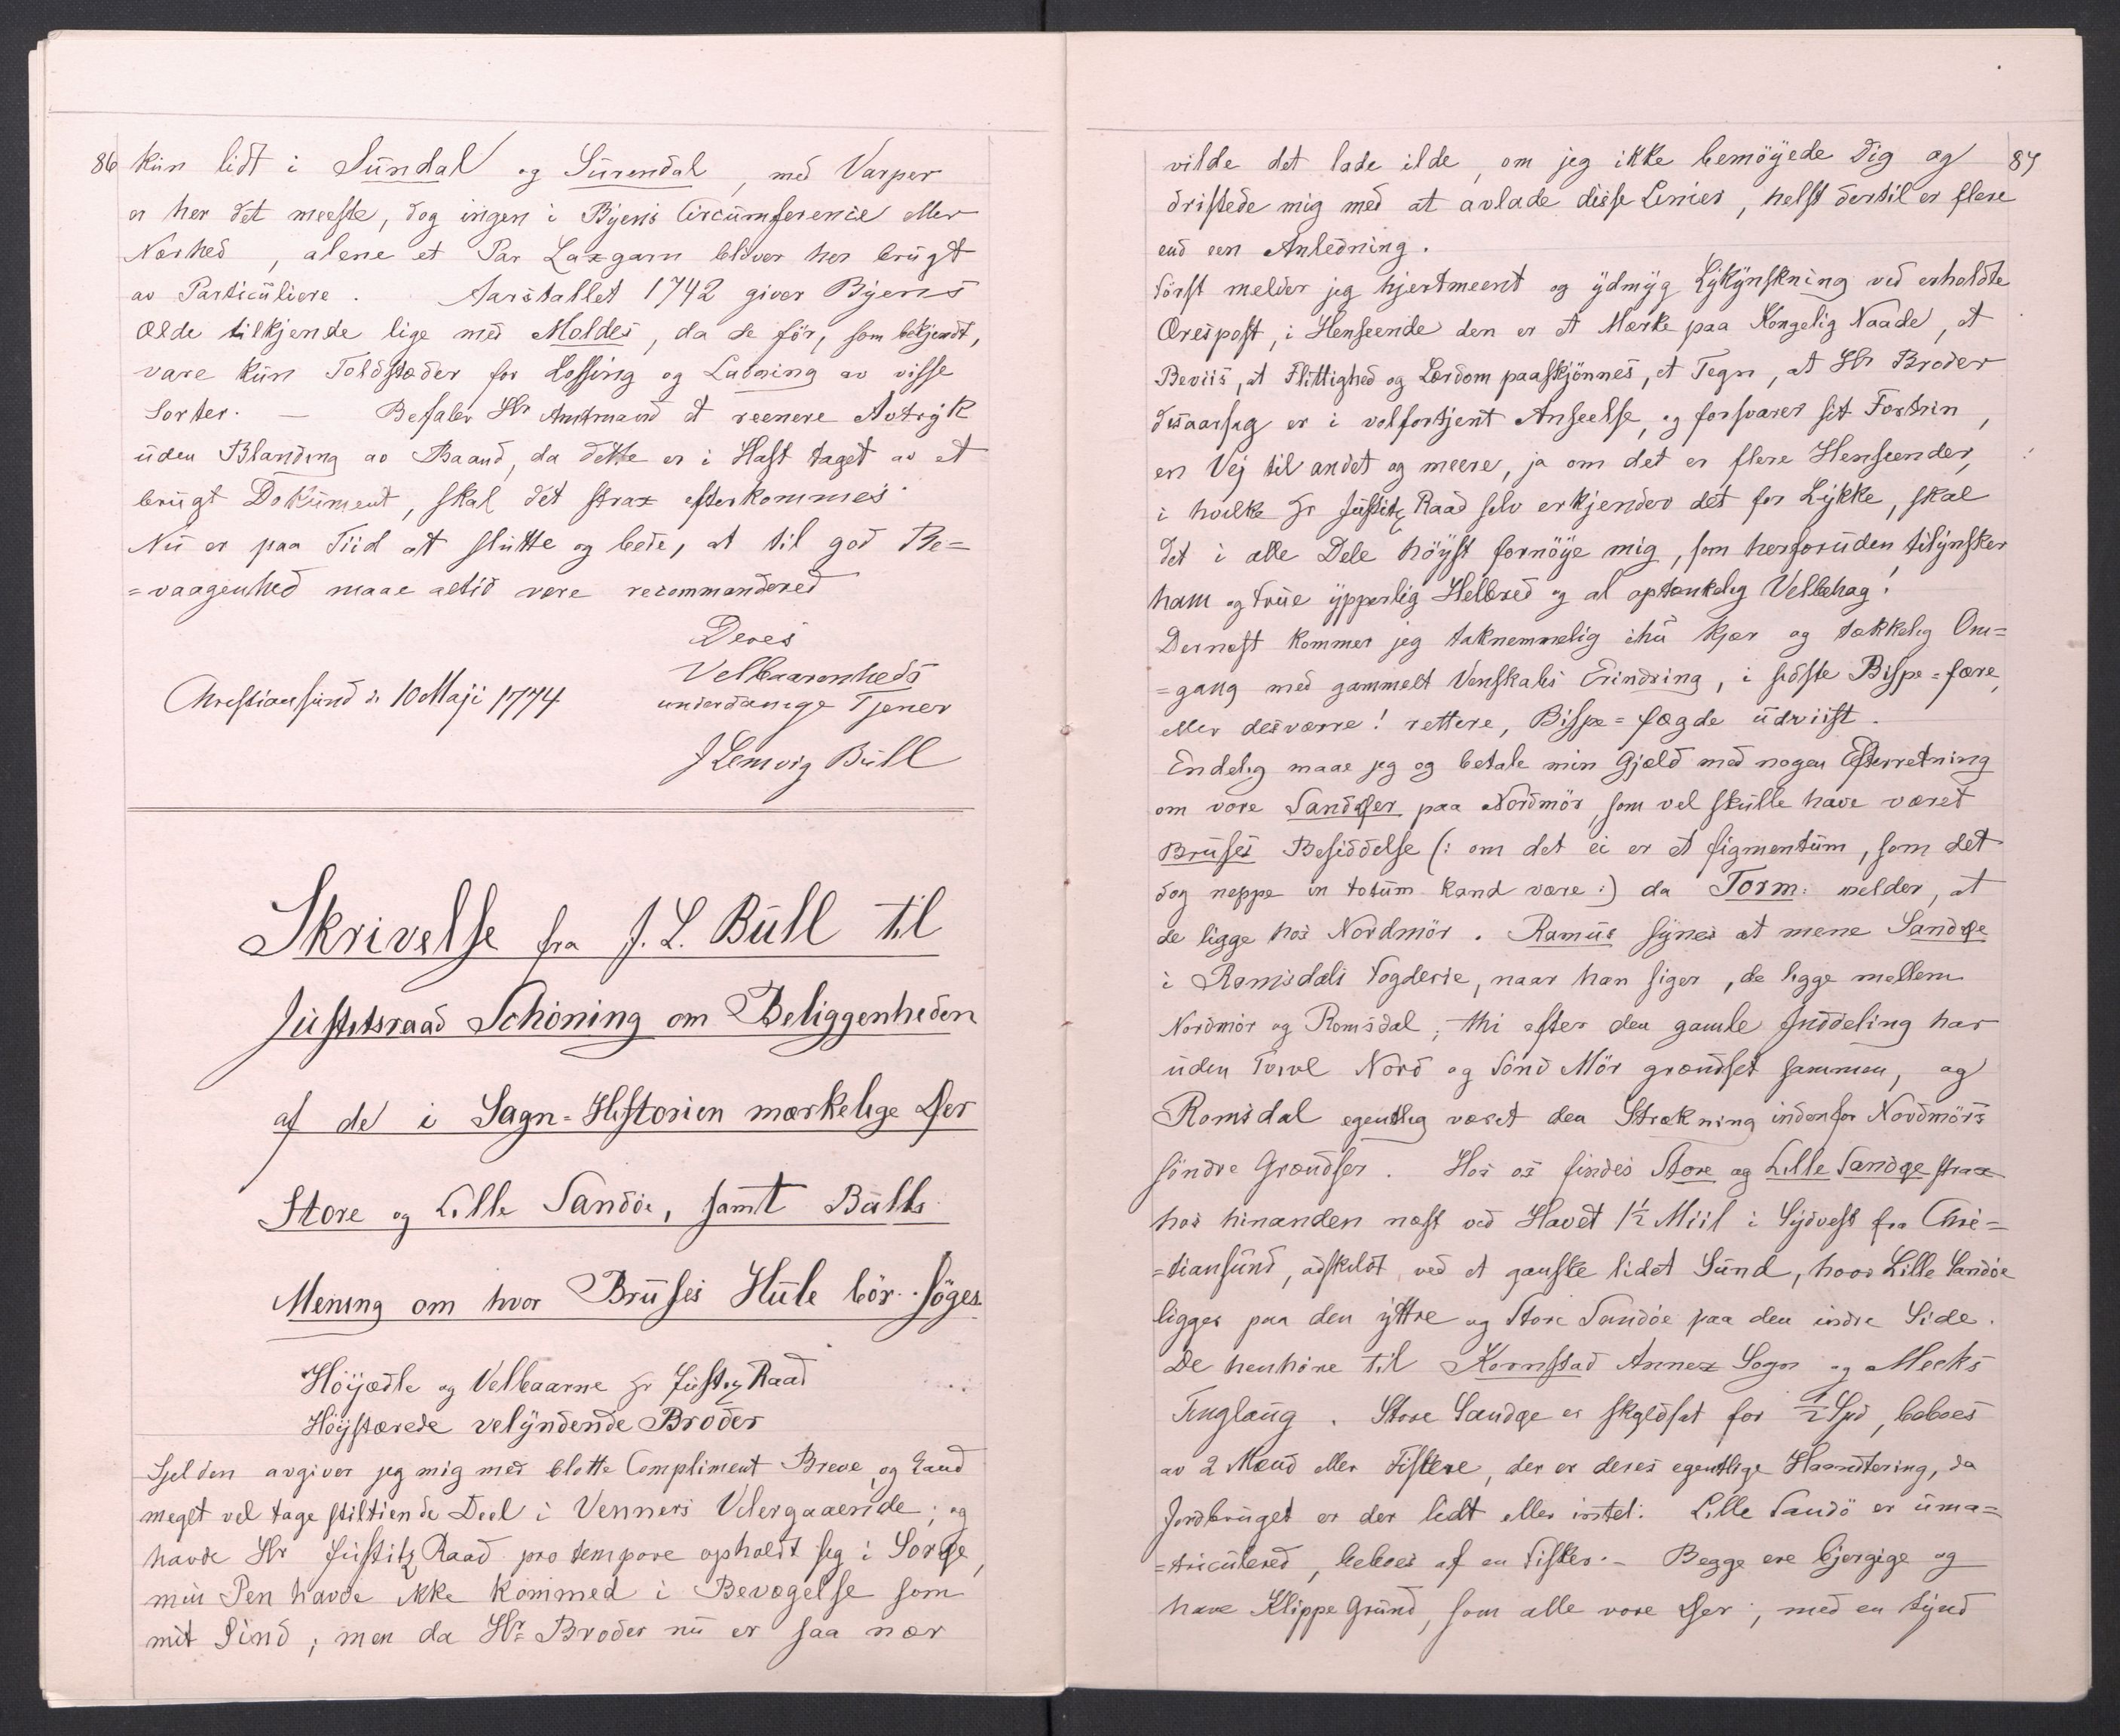 86 kun lidt i Sundal og Surendal, med Varper
er her det meeste, dog ingen i Byens Circumference eller
Nærhed, alene et Par Laxgarn bliver her brugt
av Particuliere. Aarstallet 1742 giver Byens
Ælde tilkjende lige med Moldes, da de för, som bekjendt,
vare kun Toldstæder for Lossing og Ladning av visse
Sorter. — Befaler Hr Amtmand et reenere Avtryk
uden Blanding av Baand, da dette er i Hast taget av et
brugt Dokument, skal det strax efterkommes.
Nu er paa Tiid at slutte og bede, at til god Be=
=vaagenhed maae altid være recommandered
Deres
Velbaarenheds
Christiansund d. 10 Maji 1774
underdanige Tjener
J Lemvig Bull
Skrivelse fra J. L. Bull til
Justitsraad Schöning om Beliggenheden
af de i Sagn=Historien mærkelige Øer
Store og Lille Sandöe, samt Bulls
Mening om hvor Bruses Hule bör söges.
Höyædle og Velbaarne Hr Justiz Raad
Höystærede velyndende Broder
Sjelden avgiver jeg mig med blotte Compliment Breve, og kand
meget vel tage stiltiende Deel i Venners Velergaaende; og
havde Hr Justitz Raad pro tempore opholdt sig i Sorøe,
min Pen havde ikke kommed i Bevægelse som
mit Sind; men da Hr Broder nu er saa nær
87
vilde det lade ilde, om jeg ikke bemöyede Dig og
dristede mig med at avlade disse Linier, helst dertil er flere
end een Anledning.
Först melder jeg hjertmeent og ydmyg Lykynskning ved erholdte
Ærespost, i Henseende den er et Mærke paa Kongelig Naade, et
Beviis, at Flittighed og Lærdom paaskjönnes, et Tegn, at Hr Broder
desaarsag er i velfortjent Anseelse, og forsvarer sit Fortrin,
en Vej til andet og meere, ja om det er flere Henseender,
i hvilke Hr Justitz Raad selv erkjender det for Lykke, skal
det i alle Dele höyst fornöye mig, som herforuden tilynsker
ham og Frue ypperlig Helbred og al optænkelig Velbehag!
Dernæst kommer jeg taknemmelig ihu kjær og tækkelig Om=
=gang med gammelt Venskabs Erindring, i sidste Bispe=fære,
eller desværre! rettere, Bispe=fægde udviist.
Endelig maae jeg og betale min Gjæld med nogen Efterretning
om vore Sandøer paa Nordmör, som vel skulle have været
Bruses Besiddelse (: om det ei er et figmentum, som det
dog neppe in totum kand være :) da Torm: melder, at
de ligge hos Nordmör. Ramus synes at mene Sandøe
i Romsdals Fogderie, naar han siger, de ligge mellem
Nordmör og Romsdal; thi efter den gamle Inddeling har
uden Tvivl Nord og Sönd Mör grændset sammen, og
Romsdal egentlig været den Strækning indenfor Nordmörs
söndre Grændser. Hos os findes Store og Lille Sandøe strax
hos hinanden næst ved Havet 1½ Miil i Sydvest fra Chri=
=tiansund, adskildt ved et ganske lidet Sund, hvor Lille Sandöe
ligger paa den yttre og Store Sandöe paa den indre Side.
De henhöre til Kornstad Annex Sogn og Meeks
Tinglaug. Store Sandøe er skyldsat for ½ Spd, beboes
av 2 Mænd eller Fiskere, der er deres egentlige Haandtering, da
Jordbruget er der lidt eller intet. Lille Sandö er uma=
=triculered, beboes af en Fisker. – Begge ere bjergige og
have Klippe Grund, som alle vore Øer, med en tynd